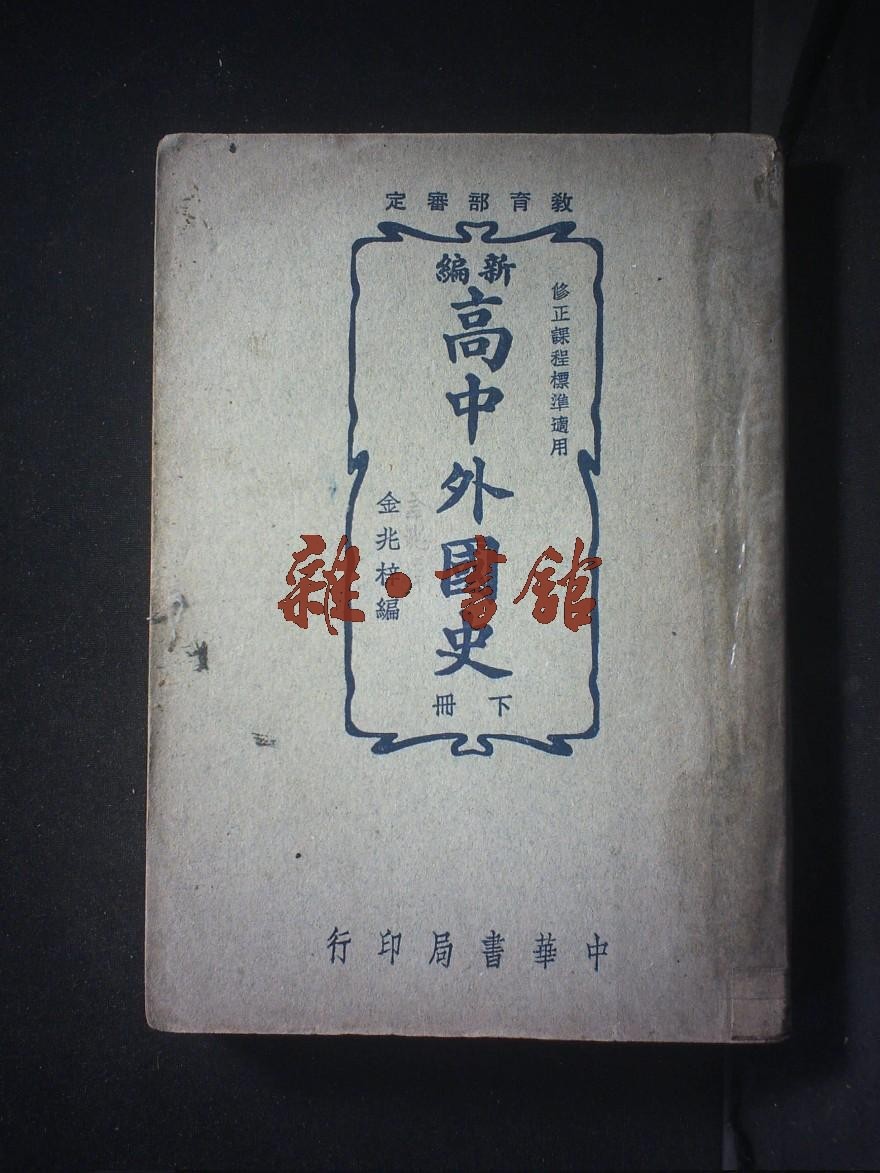 教育部審定
修正課程標準適用
新編
高中外國史
下冊
金兆梓編
中華書局印行
雜·書館